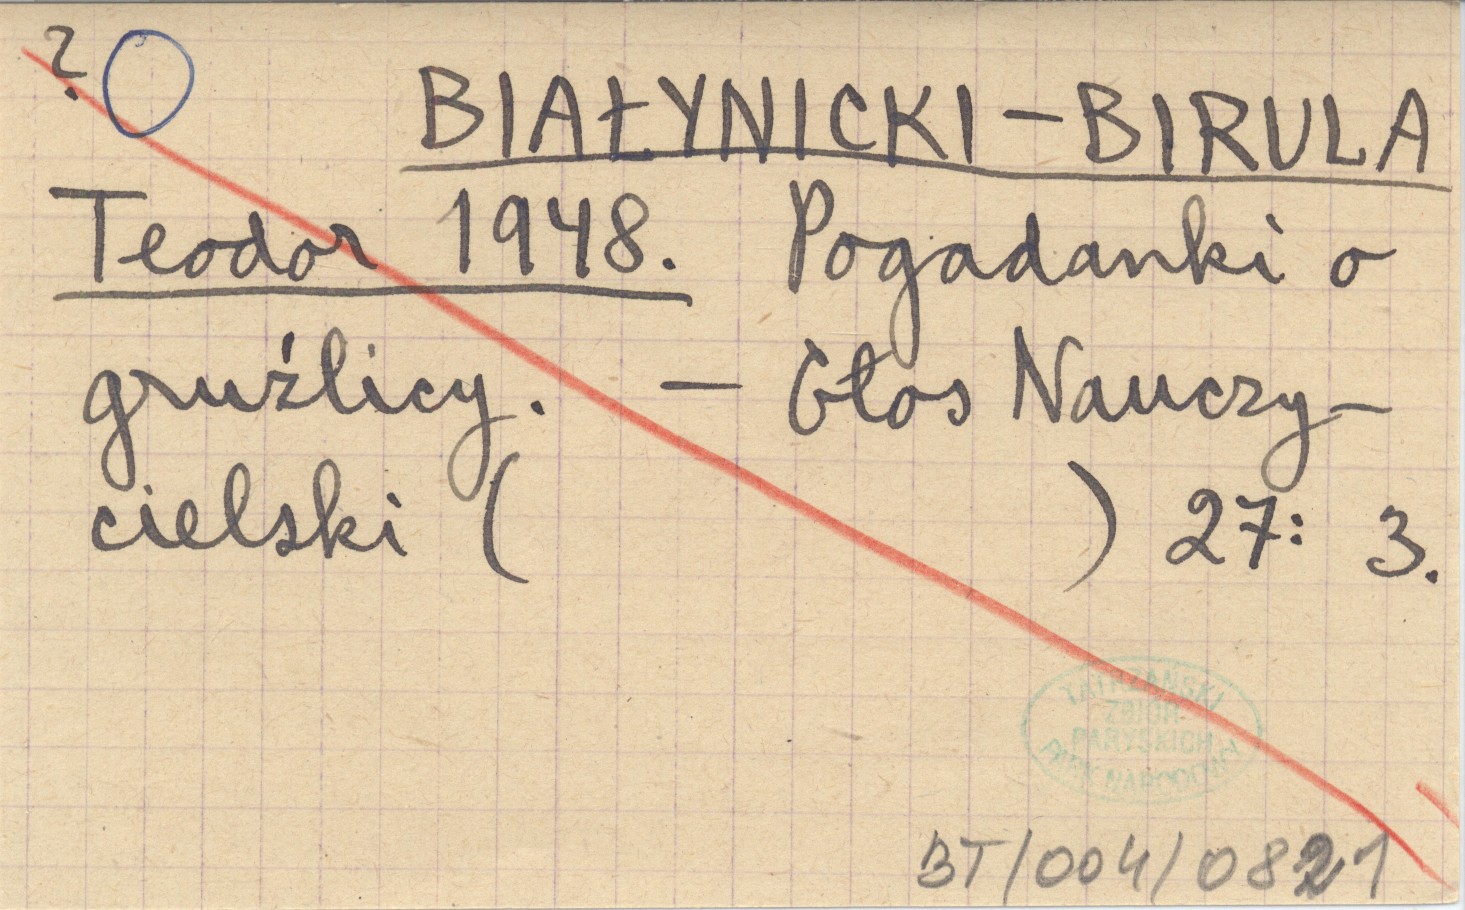 ?
BIAŁYNICKI-BIRULA
Teodor 1948. Pogadanki o
gruźlicy. — Głos Nauczy-
cielski ( ) 27: 3.
TATRZAŃSKI
ZBIÓR
PARYSKICH
PARK NARODOWY
BT/004/0821